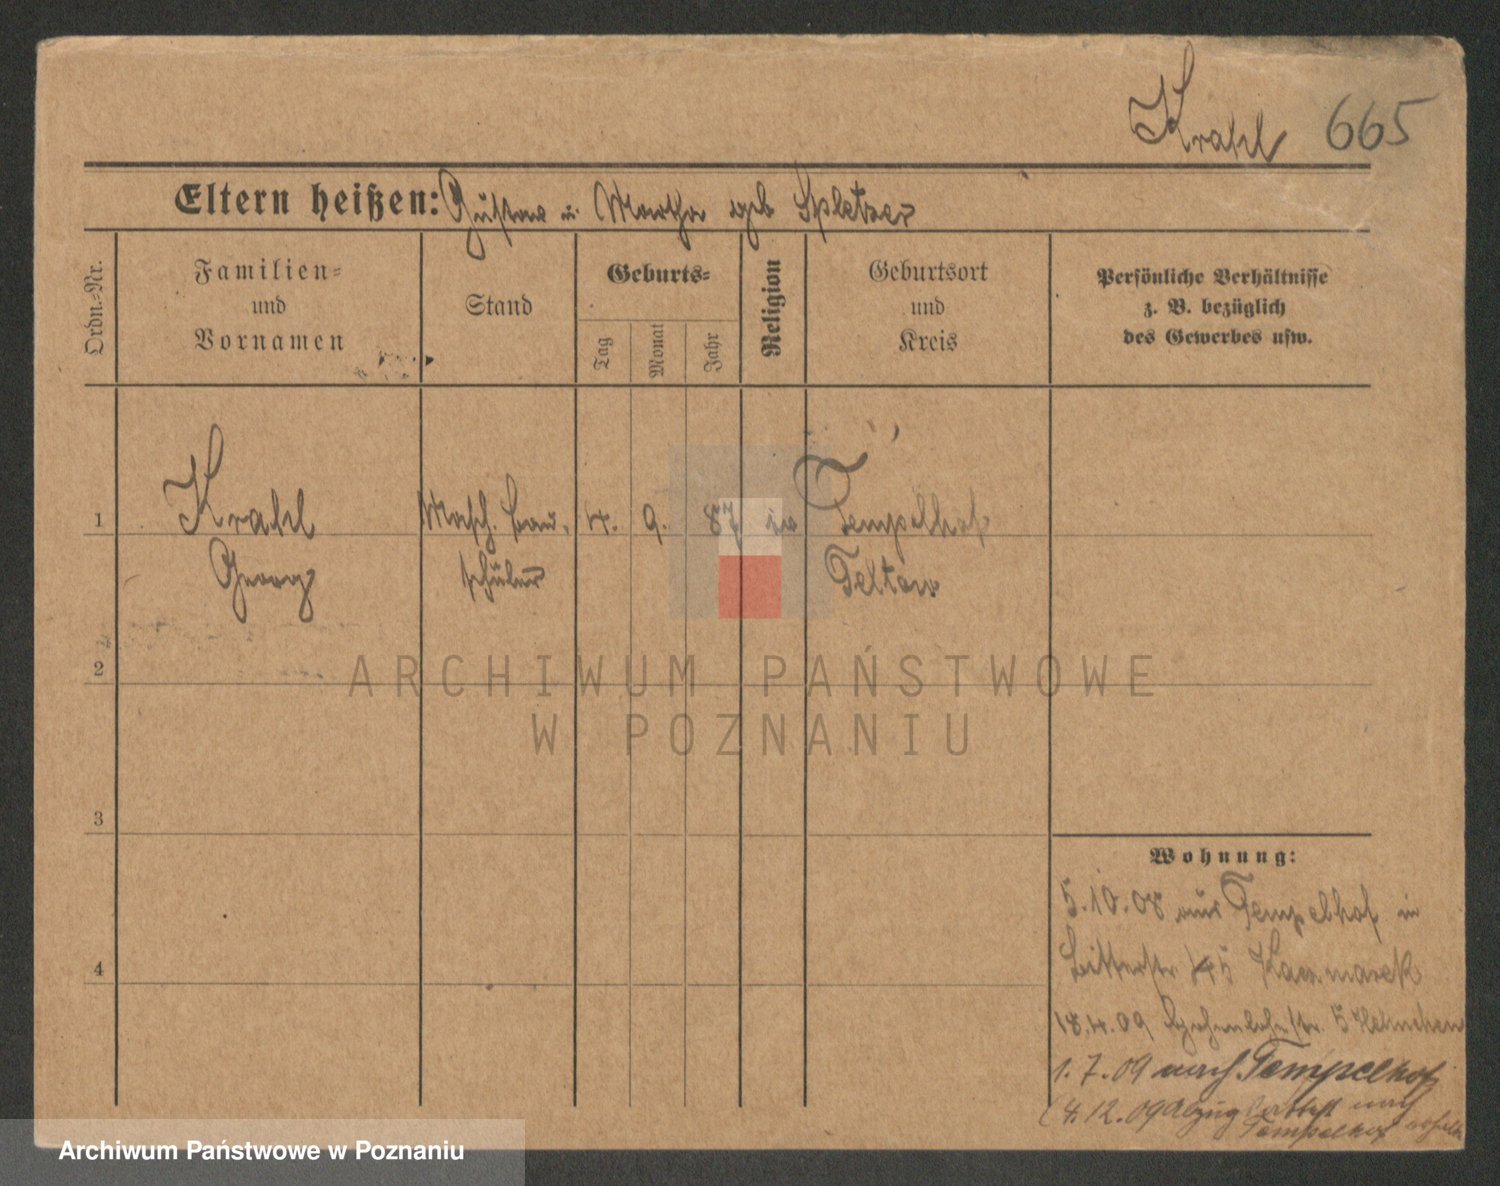 Krahl 665
Eltern heißen: Gustav u. Martha geb Spletzer
Ordn.-Nr.
Familien-
und
Vornamen
Stand
Geburts-
Tag
Monat
Jahr
Religion
Geburtsort
und
Kreis
Persönliche Verhältnisse
z. B. bezüglich
des Gewerbes usw.
1 Krahl Masch. bau- 4. 9. 87 Tempelhof
Georg schüler Teltow
2
3
4
Wohnung:
5.10.08 aus Tempelhof in
Bitterstr 45 Kaczmarek
18.4.09 Hohenlohestr. 5
1.7.09 nach Tempelhof
4.12.09 Abzug nach
Tempelhof
ARCHIWUM PAŃSTWOWE
W POZNANIU
Archiwum Państwowe w Poznaniu